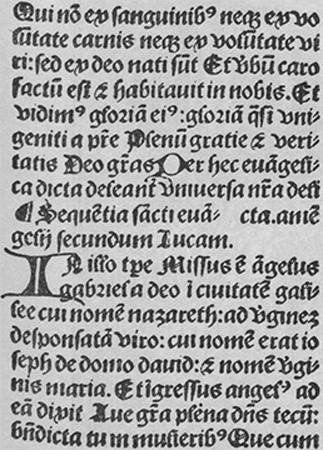 Qui nō ex sanguinibꝰ neqꝫ ex vo
lūtate carnis neqꝫ ex volūtate vi
ri: sed ex deo nati sūt Et v̄bū caro
factū est ⁊ habitauit in nobis. Et
vidimꝰ gloriā eiꝰ: gloriā q̄si vni
geniti a pr̄e Plenū gratie ⁊ veri-
tatis Deo gr̄as Per hec euāgeli-
ca dicta deleant̄ v̄niuersa nr̄a deli
¶ Sequētia sācti euā- cta. amē
gelij secundum Lucam.
IN illo tꝑe Missus ē āgelus
gabriel a deo ī ciuitatē gali-
lee cui nomē nazareth: ad v̄ginez
desponsatā viro: cui nomē erat io
seph de domo dauid: ⁊ nomē v̄gi-
nis maria. Et īgressus angelꝰ ad
eā dixit Aue gr̄a plena dn̄s tecū:
bn̄dicta tu in mulieribꝰ Que cum